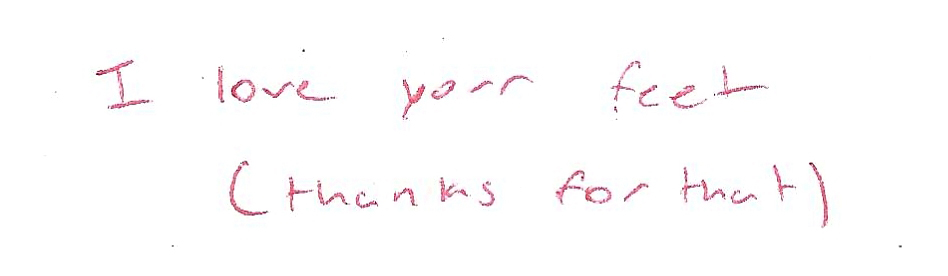 I love your feet
(thanks for that)